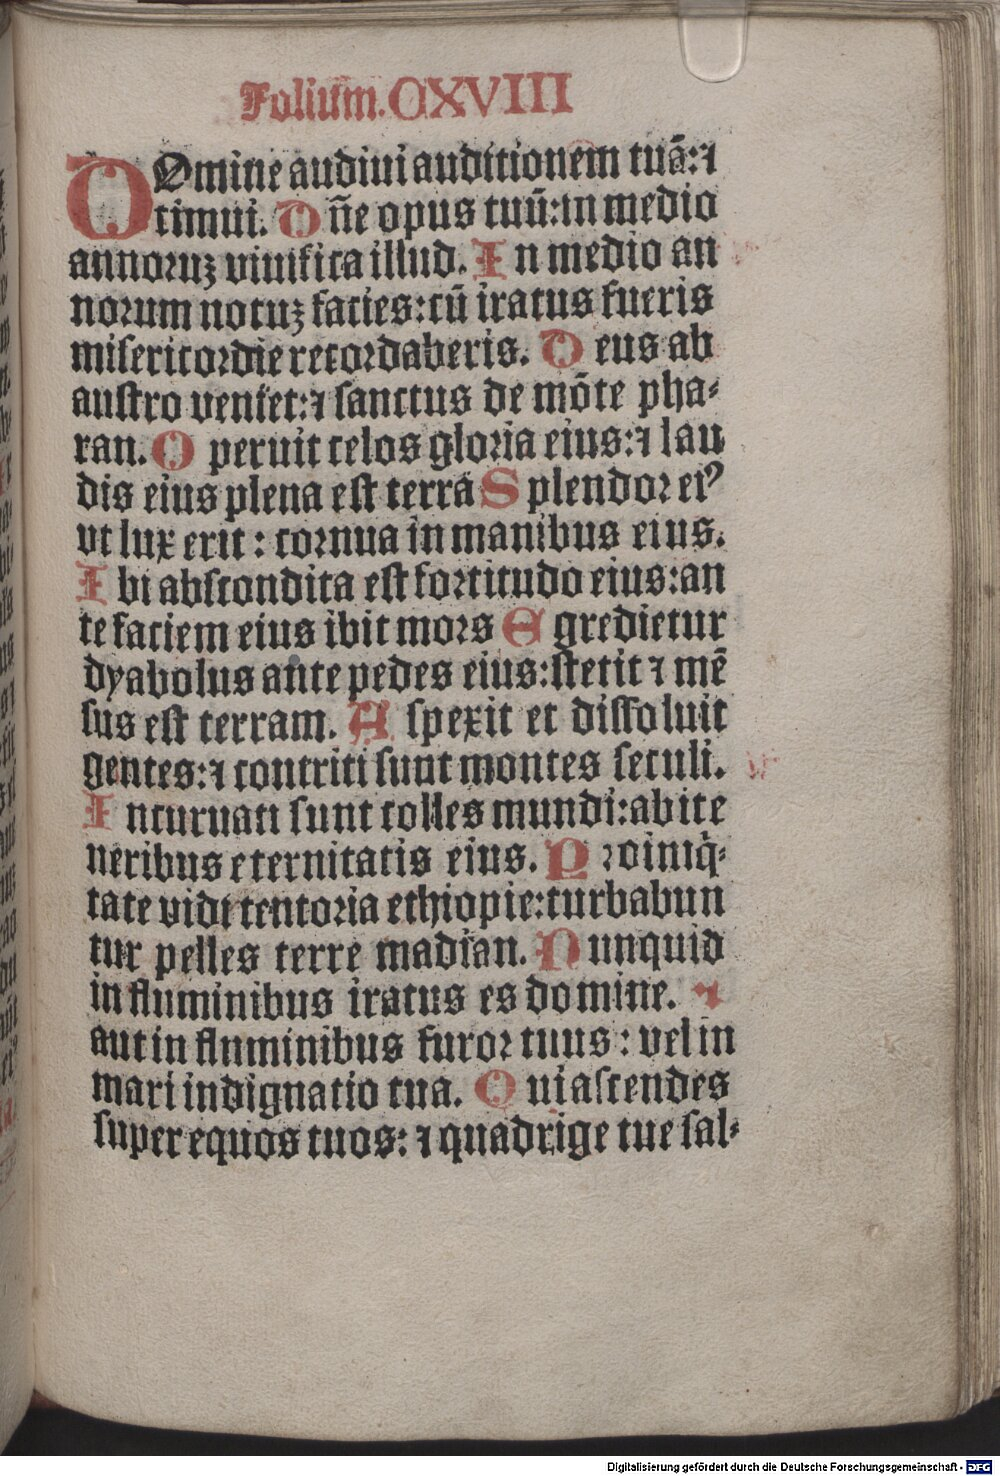 Folium. CXVIII
DOmine audiui auditionem tuã: ⁊
timui. Dñe opus tuũ: in medio
annoruꝫ viuifica illud. In medio an
norum notuꝫ facies: cũ iratus fueris
misericordie recordaberis. Deus ab
austro veniet: ⁊ sanctus de mõte pha⸗
ran. Operuit celos gloria eius: ⁊ lau
dis eius plena est terra Splendor eiꝰ
vt lux erit: cornua in manibus eius.
Ibi abscondita est fortitudo eius: an
te faciem eius ibit mors Egredietur
dyabolus ante pedes eius: stetit ⁊ mẽ
sus est terram. Aspexit et dissoluit
gentes: ⁊ contriti sunt montes seculi.
Incuruati sunt colles mundi: ab ite
neribus eternitatis eius. Pro iniq̃⸗
tate vidi tentoria ethiopie: turbabun
tur pelles terre madian. Nunquid
in fluminibus iratus es domine. ⁊
aut in fluminibus furor tuus: vel in
mari indignatio tua. Qui ascendes
super equos tuos: ⁊ quadrige tue sal⸗
Digitalisierung gefördert durch die Deutsche Forschungsgemeinschaft - DFG